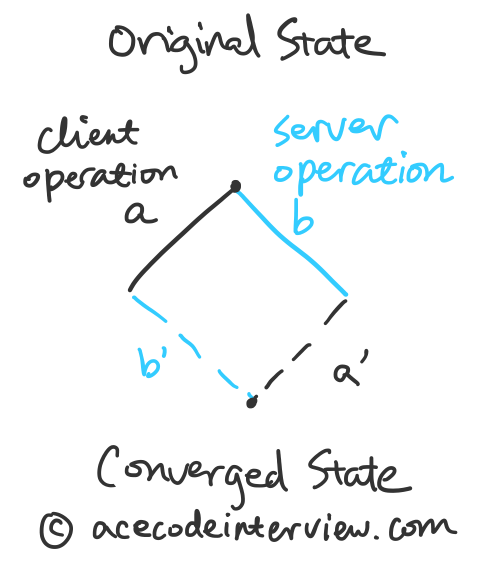 Original State
client
operation
a
server
operation
b
b'
a'
Converged State
© acecodeinterview.com